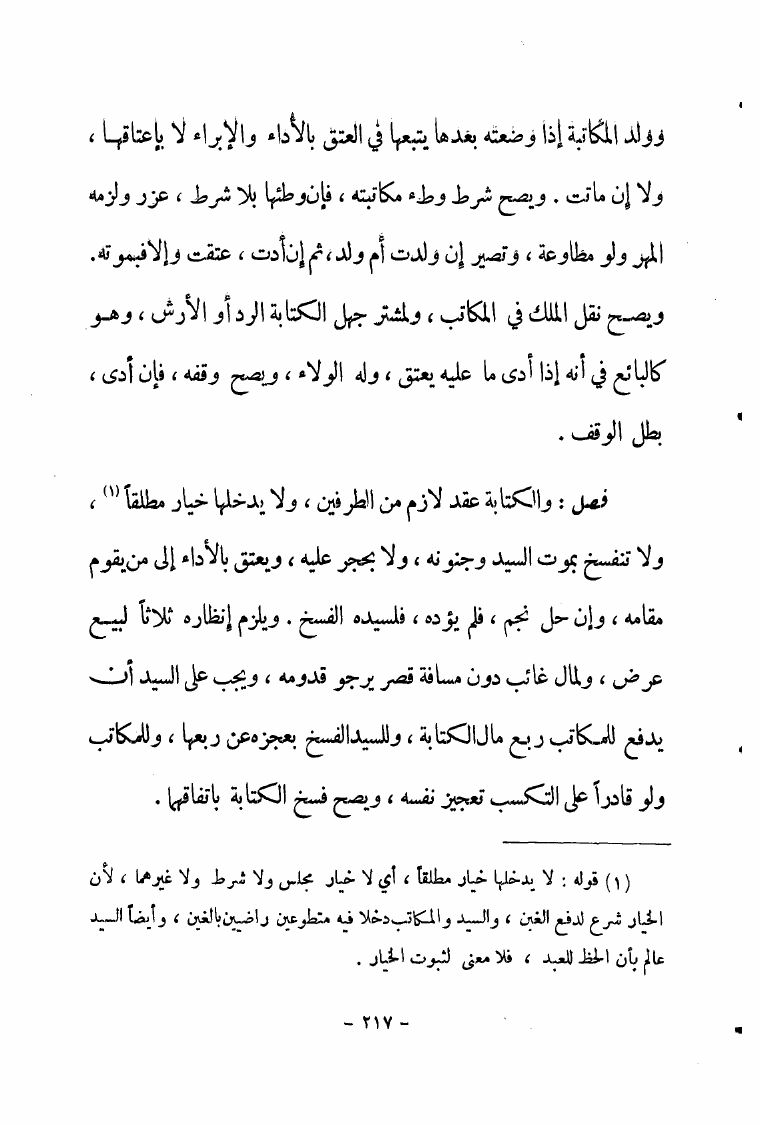 وولد المكاتبة إذا وضعته بعدها يتبعها في العتق بالأداء والإبراء لا بإعتاقها ،
ولا إن ماتت . ويصح شرط وطء مكاتبته ، فإن وطئها بلا شرط ، عزر ولزمه
المهر ولو مطاوعة ، وتصير إن ولدت أم ولد ، ثم إن أدت ، عتقت وإلا فبموته .
ويصح نقل الملك في المكاتب ، ولمشتر جهل الكتابة الرد أو الأرش ، وهو
كالبائع في أنه إذا أدى ما عليه يعتق ، وله الولاء ، ويصح وقفه ، فإن أدى ،
بطل الوقف .
فصل : والكتابة عقد لازم من الطرفين ، ولا يدخلها خيار مطلقاً (١) ،
ولا تنفسخ بموت السيد وجنونه ، ولا بحجر عليه ، ويعتق بالأداء إلى من يقوم
مقامه ، وإن حل نجم ، فلم يؤده ، فلسيده الفسخ . ويلزم إنظاره ثلاثاً لبيع
عرض ، ولمال غائب دون مسافة قصر يرجو قدومه ، ويجب على السيد أن
يدفع للمكاتب ربع مال الكتابة ، وللسيد الفسخ بعجزه عن ربعها ، وللمكاتب
ولو قادراً على التكسب تعجيز نفسه ، ويصح فسخ الكتابة باتفاقهما .
(١) قوله : لا يدخلها خيار مطلقاً ، أي لا خيار مجلس ولا شرط ولا غيرهما ، لأن
الخيار شرع لدفع الغبن ، والسيد والمكاتب دخلا فيه متطوعين راضيين بالغبن ، وأيضاً السيد
عالم بأن الحظ للعبد ، فلا معنى لثبوت الخيار .
- ٢١٧ -